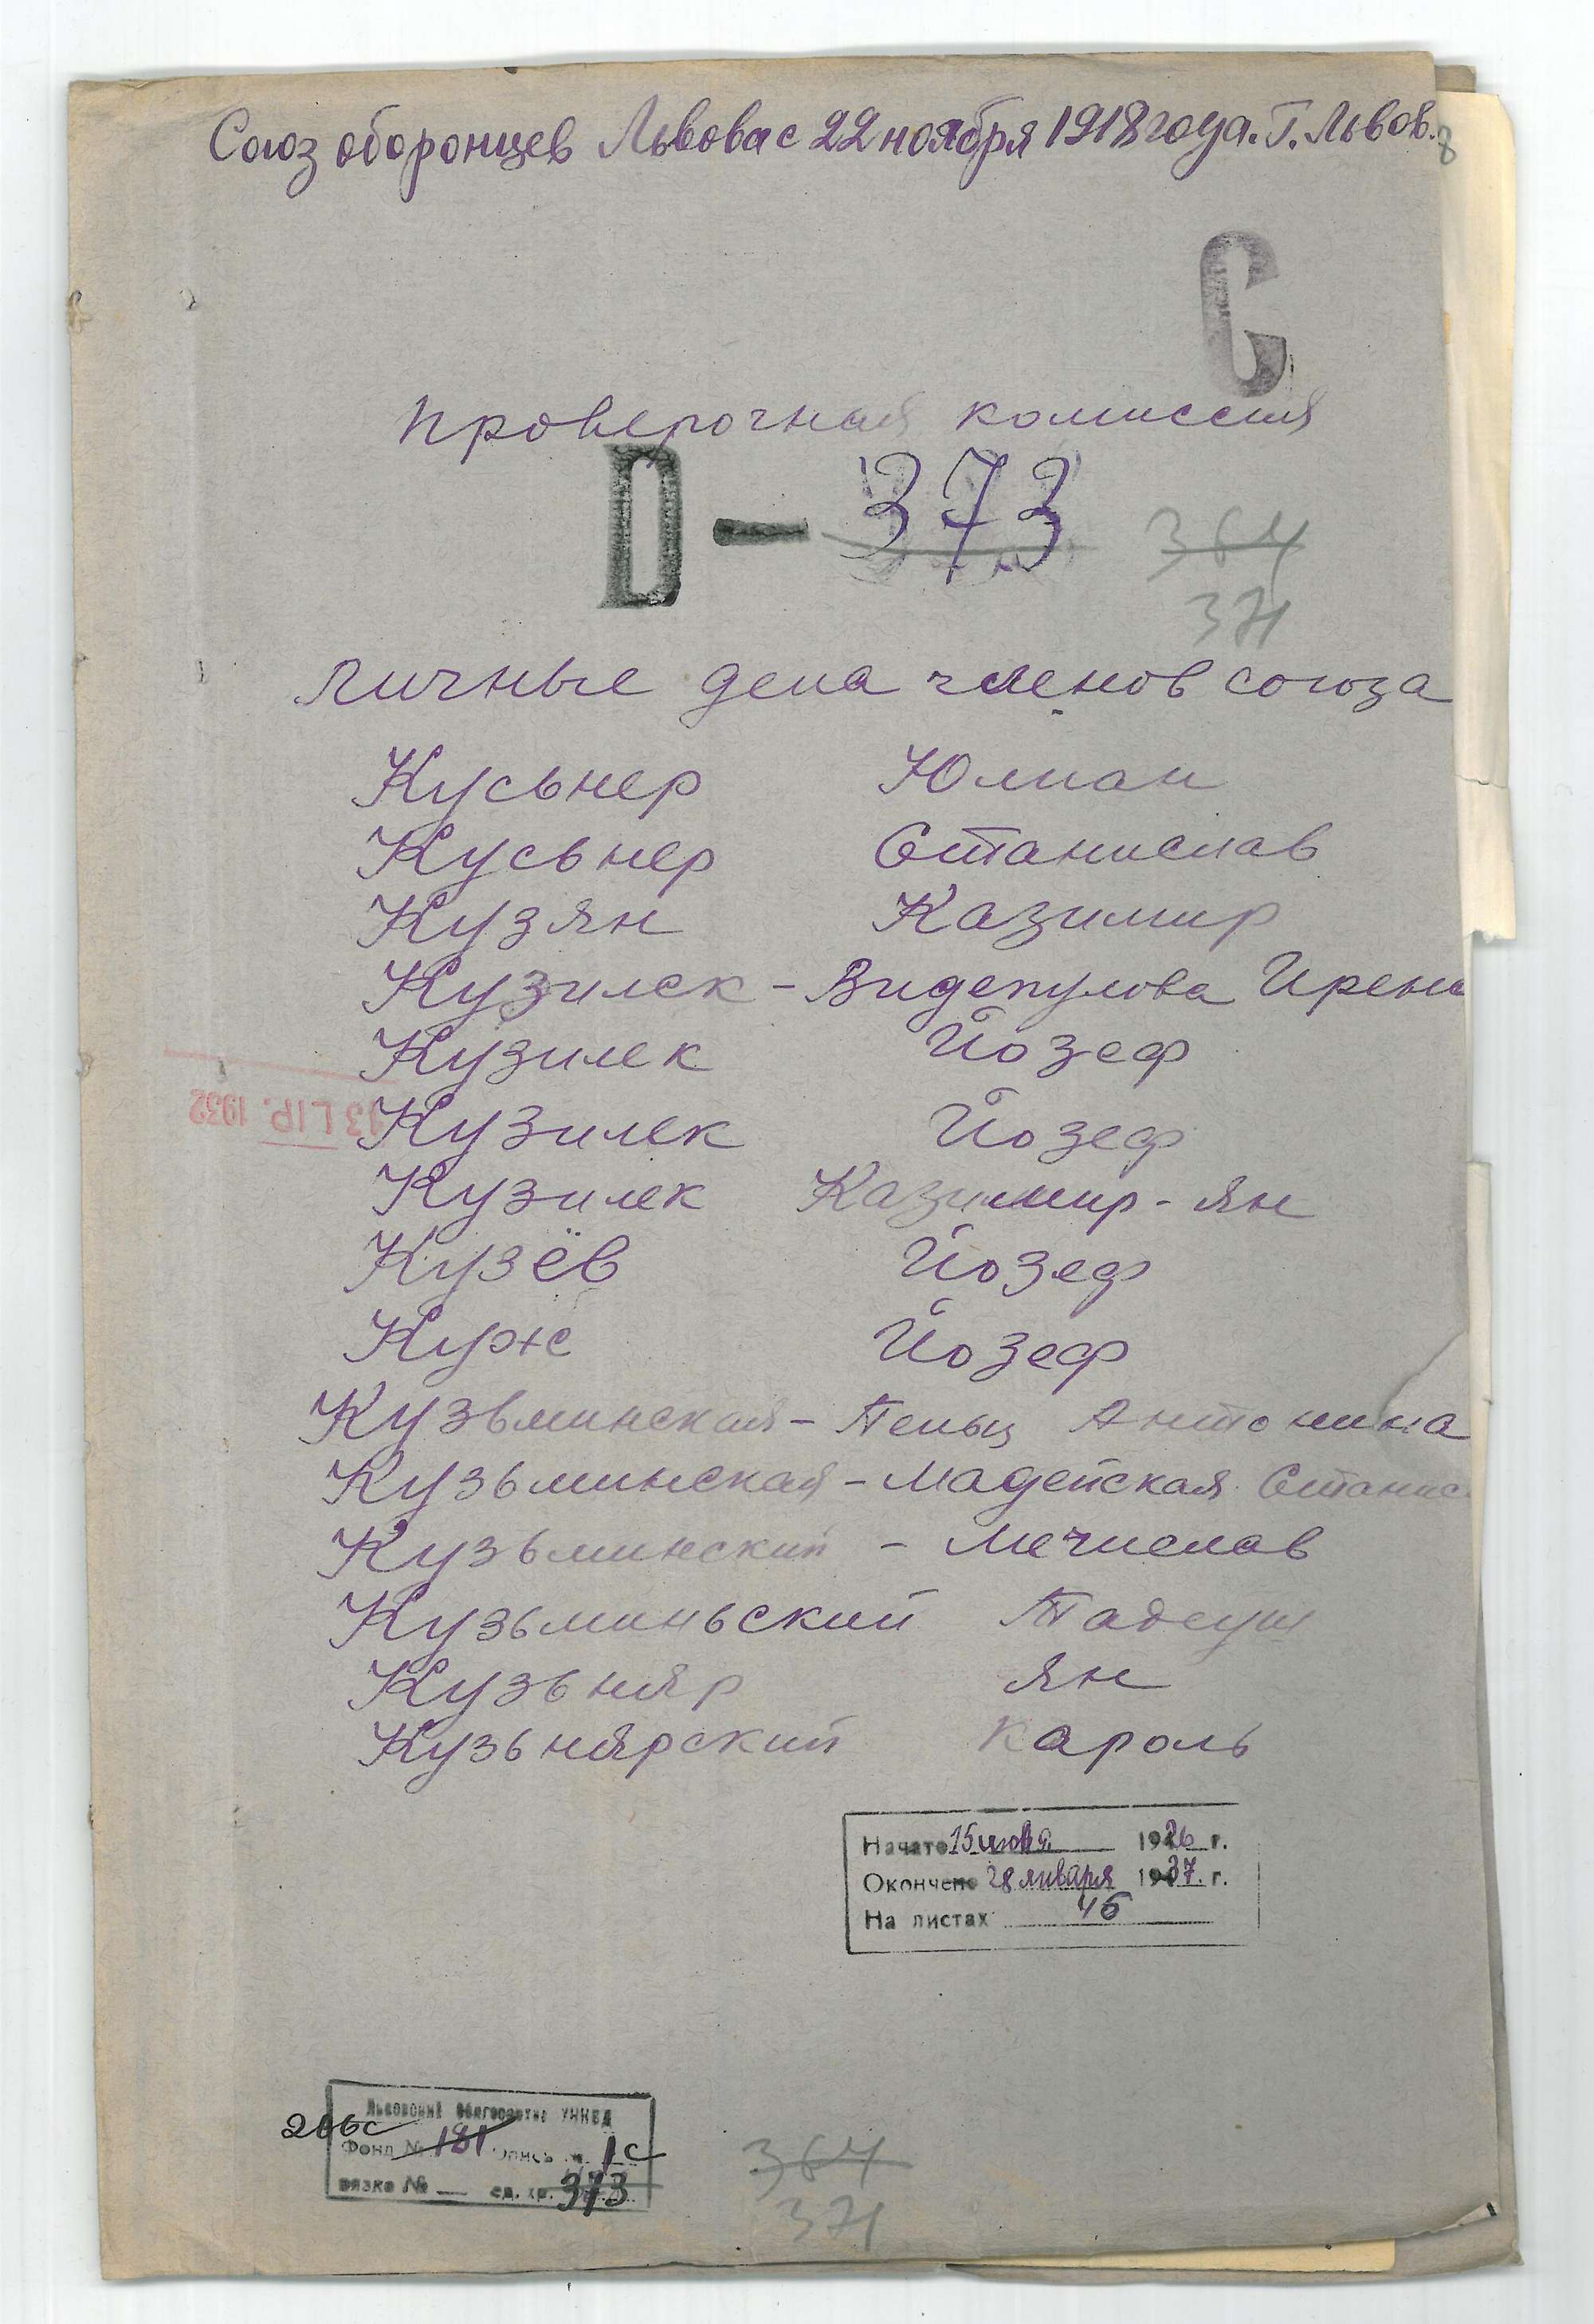 Союз оборонцев Львова с 22 ноября 1918 года. Г. Львов.
8
С
Проверочная комиссия
D — 373
364
371
Личные дела членов союза
Кусьнер Юлиан
Кусьнер Станислав
Кузян Казимир
Кузилек - Видепулова Ирена
Кузилек Йозеф
Кузилек Йозеф
13 LIP. 1932
Кузилек Казимир - Ян
Кузёв Йозеф
Куж Йозеф
Кузьминская - Тепьц Антонина
Кузьминская - Мадейская Станис
Кузьминский - Мечислав
Кузьминьский Тадеуш
Кузьняр Ян
Кузьнярский Кароль
Начато 15 1926 г.
Окончено 28 января 1937. г.
На листах 46
Львовский Облгосархив УНКВД
266с
Фонд № 181 Опись № 1с
вязка № — ед. хр. 373
364
371